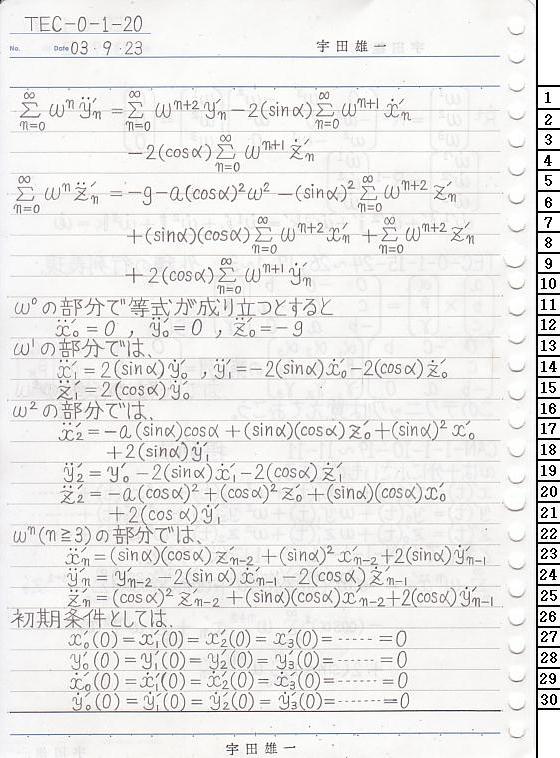 TEC-0-1-20
No. Date 03・9・23 宇田雄一
∞∑n=0 ωⁿÿ′ₙ = ∞∑n=0 ωⁿ⁺²y′ₙ − 2(sinα)∞∑n=0 ωⁿ⁺¹ẋ′ₙ
− 2(cosα)∞∑n=0 ωⁿ⁺¹ż′ₙ
∞∑n=0 ωⁿz̈′ₙ = −g − a(cosα)²ω² − (sinα)²∞∑n=0 ωⁿ⁺²z′ₙ
+ (sinα)(cosα)∞∑n=0 ωⁿ⁺²x′ₙ + ∞∑n=0 ωⁿ⁺²z′ₙ
+ 2(cosα)∞∑n=0 ωⁿ⁺¹ẏ′ₙ
ω⁰の部分で等式が成り立つとすると
ẍ′₀ = 0 , ÿ′₀ = 0 , z̈′₀ = −g
ω¹の部分では、
ẍ′₁ = 2(sinα)ẏ′₀ , ÿ′₁ = −2(sinα)ẋ′₀ − 2(cosα)ż′₀
z̈′₁ = 2(cosα)ẏ′₀
ω²の部分では、
ẍ′₂ = −a(sinα)cosα + (sinα)(cosα)z′₀ + (sinα)²x′₀
+ 2(sinα)ẏ′₁
ÿ′₂ = y′₀ − 2(sinα)ẋ′₁ − 2(cosα)ż′₁
z̈′₂ = −a(cosα)² + (cosα)²z′₀ + (sinα)(cosα)x′₀
+ 2(cosα)ẏ′₁
ωⁿ(n≧3)の部分では、
ẍ′ₙ = (sinα)(cosα)z′ₙ₋₂ + (sinα)²x′ₙ₋₂ + 2(sinα)ẏ′ₙ₋₁
ÿ′ₙ = y′ₙ₋₂ − 2(sinα)ẋ′ₙ₋₁ − 2(cosα)ż′ₙ₋₁
z̈′ₙ = (cosα)²z′ₙ₋₂ + (sinα)(cosα)x′ₙ₋₂ + 2(cosα)ẏ′ₙ₋₁
初期条件としては、
x′₀(0) = x′₁(0) = x′₂(0) = x′₃(0) = ------ = 0
y′₀(0) = y′₁(0) = y′₂(0) = y′₃(0) = ------ = 0
ẋ′₀(0) = ẋ′₁(0) = ẋ′₂(0) = ẋ′₃(0) = ------ = 0
ẏ′₀(0) = ẏ′₁(0) = ẏ′₂(0) = ẏ′₃(0) = ------ = 0
宇田雄一
1
2
3
4
5
6
7
8
9
10
11
12
13
14
15
16
17
18
19
20
21
22
23
24
25
26
27
28
29
30